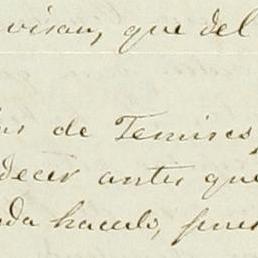 visan, que del
de Temires,
decer antes que
da hacerlo, pues